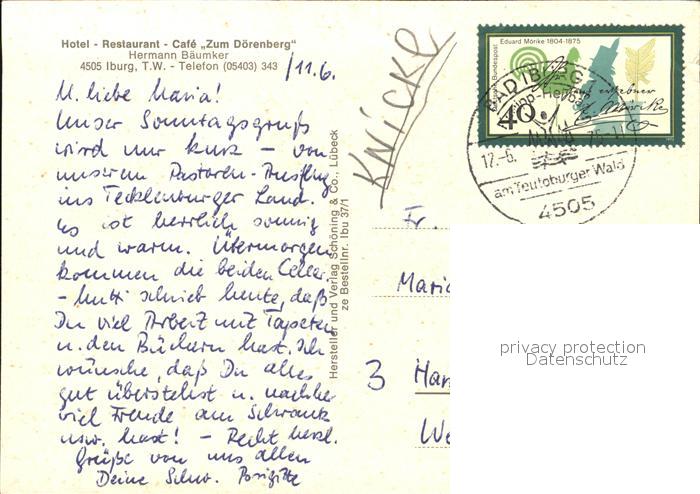 Hotel - Restaurant - Café „Zum Dörenberg"
Hermann Bäumker
4505 Iburg, T.W. - Telefon (05403) 343
/11.6.
M. liebe Maria!
Unser Sonntagsgruß
wird nur kurz - von
unserem Pastoren-Ausflug
ins Tecklenburger Land.
Es ist herrlich sonnig
und warm. Übermorgen
kommen die beiden Celler.
- Mutti schrieb heute, daß
Du viel Arbeit mit Tapeten
u. den Büchern hast. Ich
wünsche, daß Du alles
gut überstehst u. nachher
viel Freude am Schrank
usw. hast! - Recht herzl.
Grüße von uns allen
Deine Schw. Brigitte
Hersteller und Verlag Schöning & Co., Lübeck
ze Bestellnr. Ibu 37/1
KNICKE
Eduard Mörike 1804-1875
Deutsche Bundespost
40
BAD IBURG
17.-6.
am Teutoburger Wald
4505
Fr.
Maria
3 Han
We
privacy protection
Datenschutz